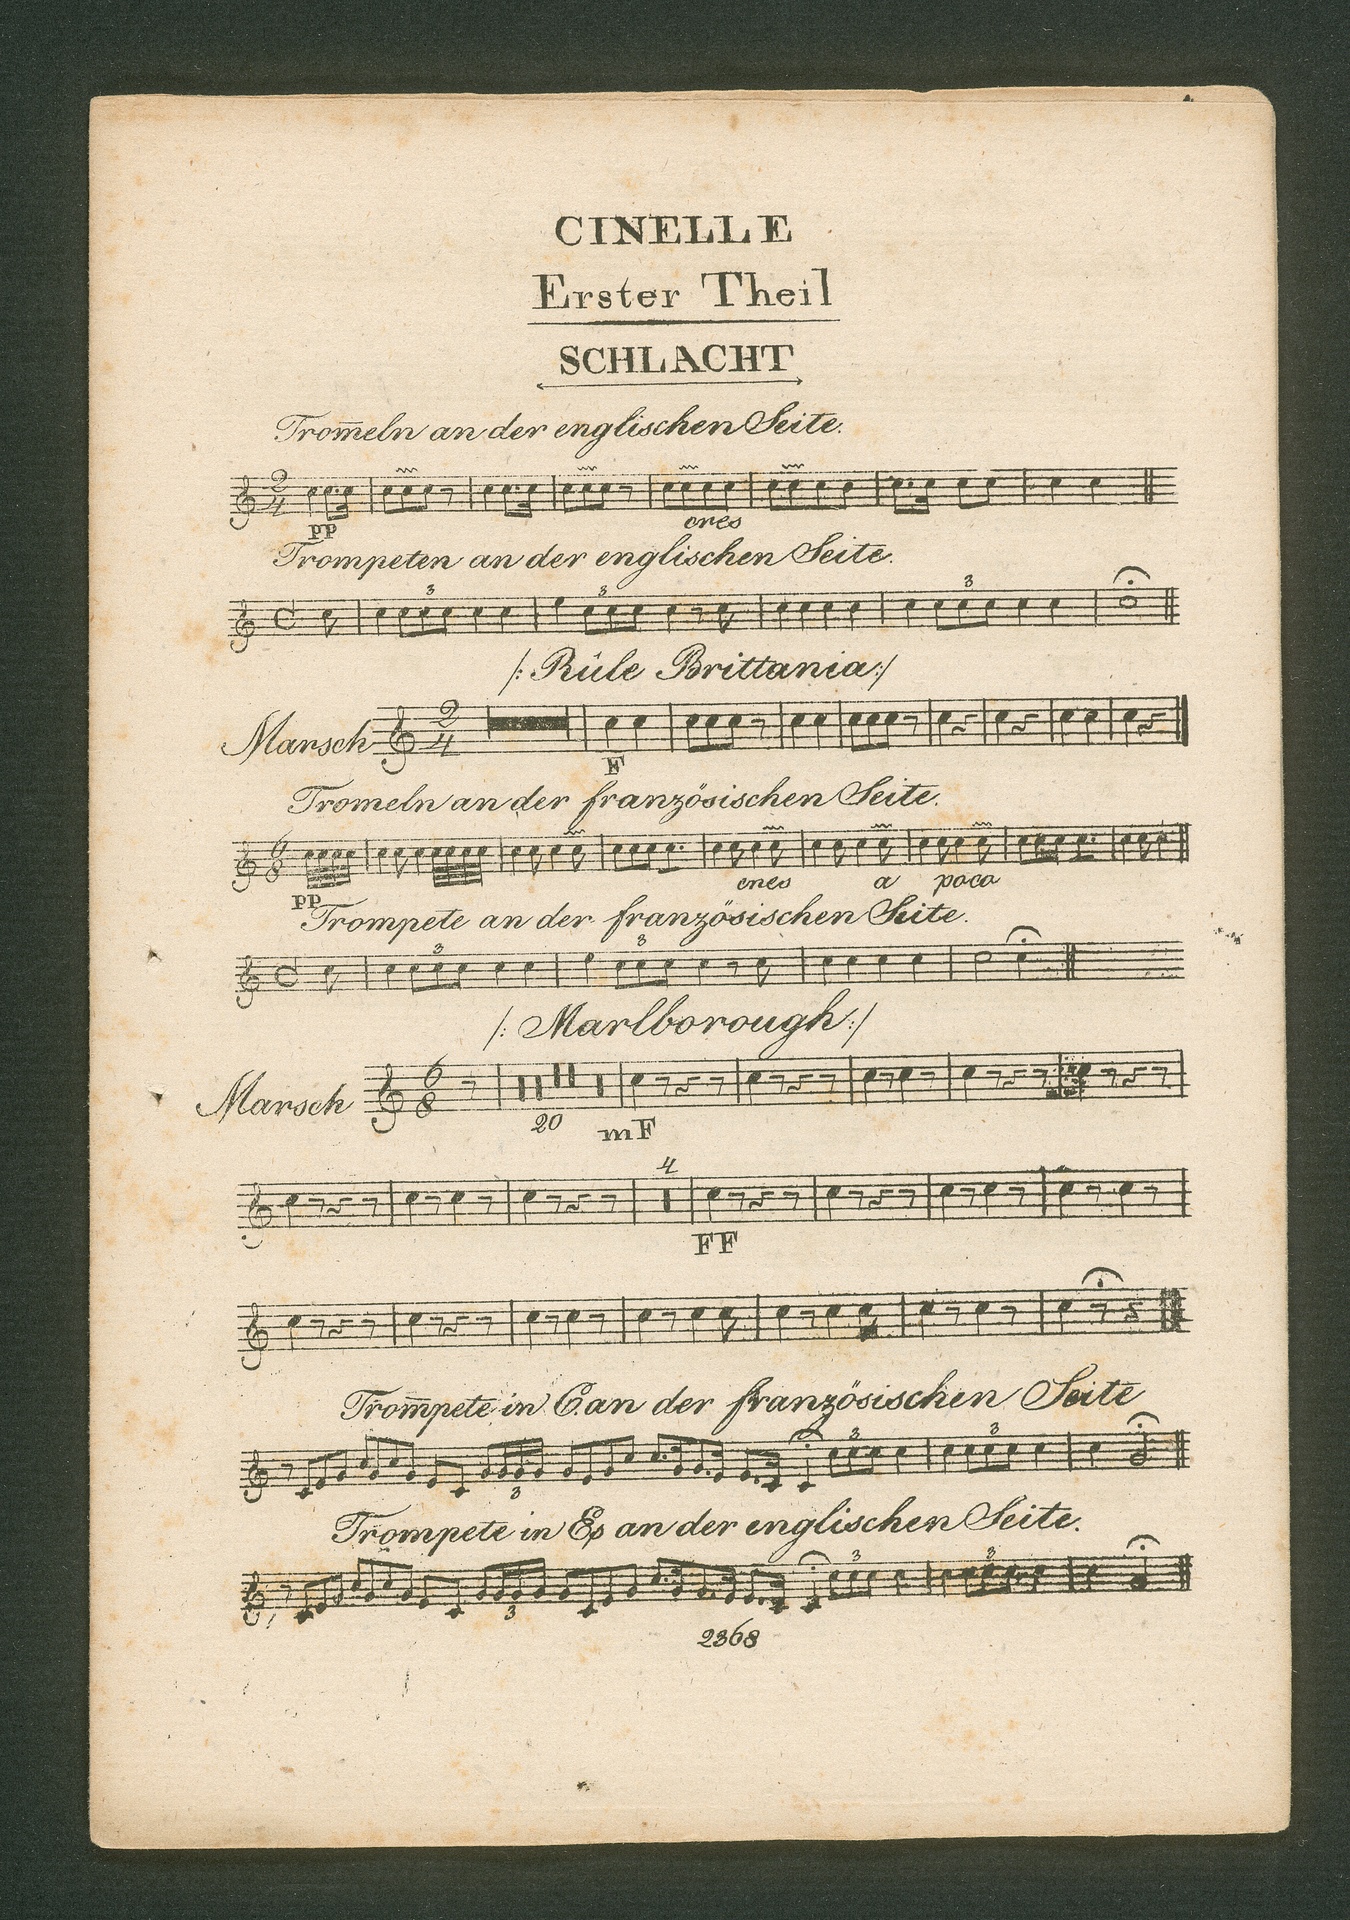 CINELLE
Erster Theil
SCHLACHT
Trom̅eln an der englischen Seite.
2
4
pp
cres
Trompeten an der englischen Seite.
3 3 3
/: Rüle Brittania :/
Marsch 2
4
F
Tromeln an der französischen Seite.
6
8
pp cres a poco
Trompete an der französischen Seite.
3 3
/: Marlborough :/
Marsch 6
8
20 mF
4
FF
Trom̅pete in C. an der französischen Seite
3 3 3
Trompete in Es an der englischen Seite.
3 3 3
2368